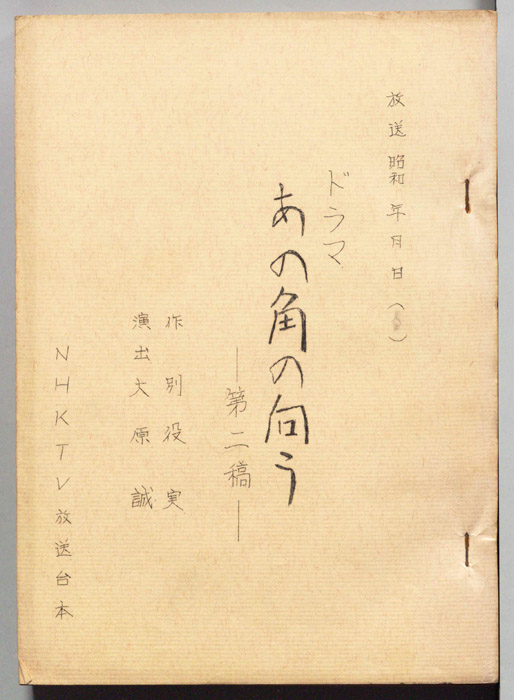 放送 昭和 年 月 日 ( )
ドラマ
あの角の向う
―第二稿―
作 別役 実
演出 大原 誠
NHKTV放送台本